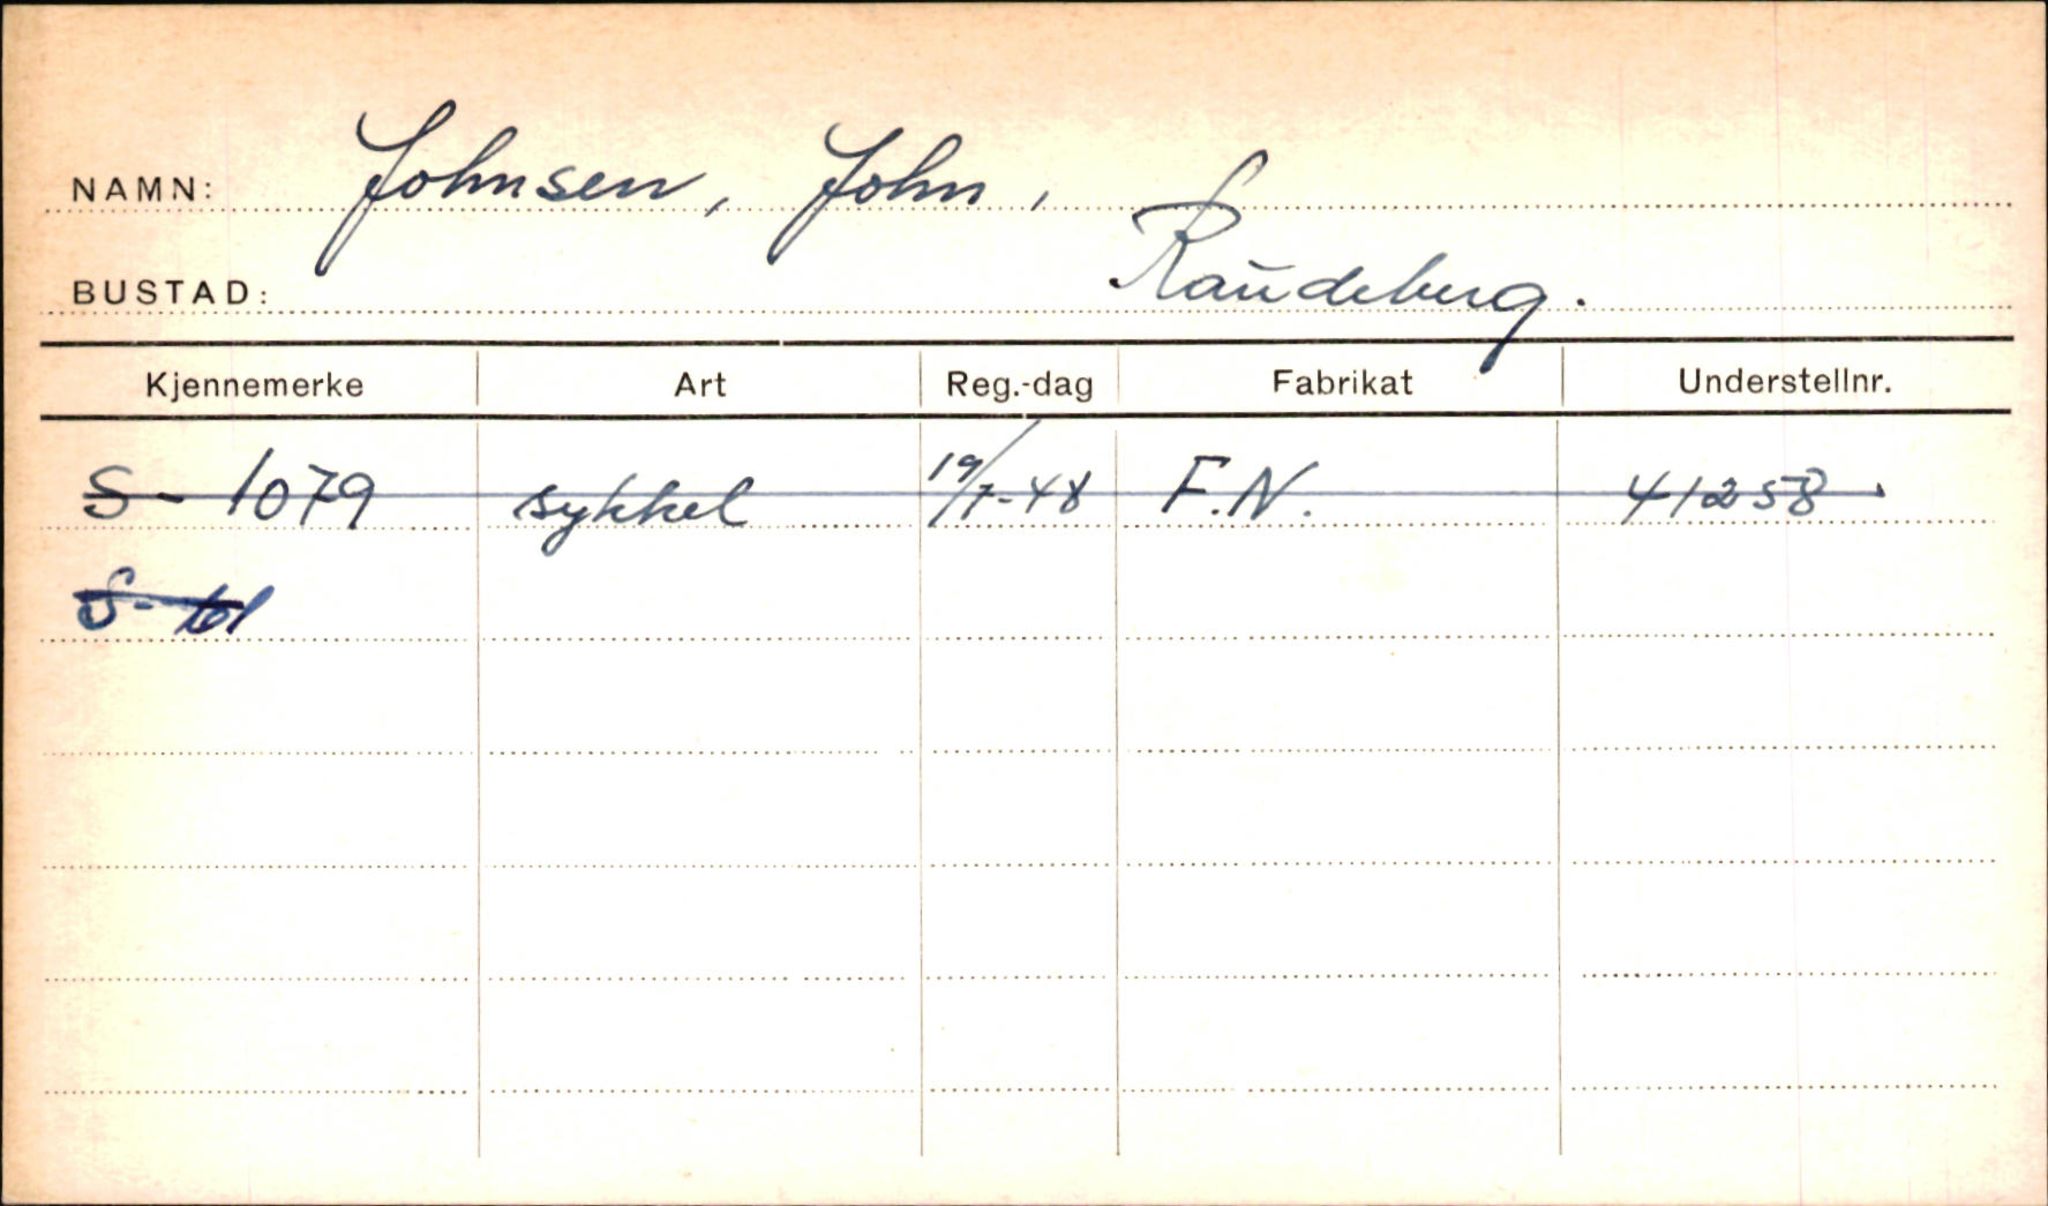 NAMN: Johnsen, John,
BUSTAD: Raudeberg.
Kjennemerke Art Reg.-dag Fabrikat Understellnr.
S - 1079 sykkel 19/7-48 F.N. 41258
S-